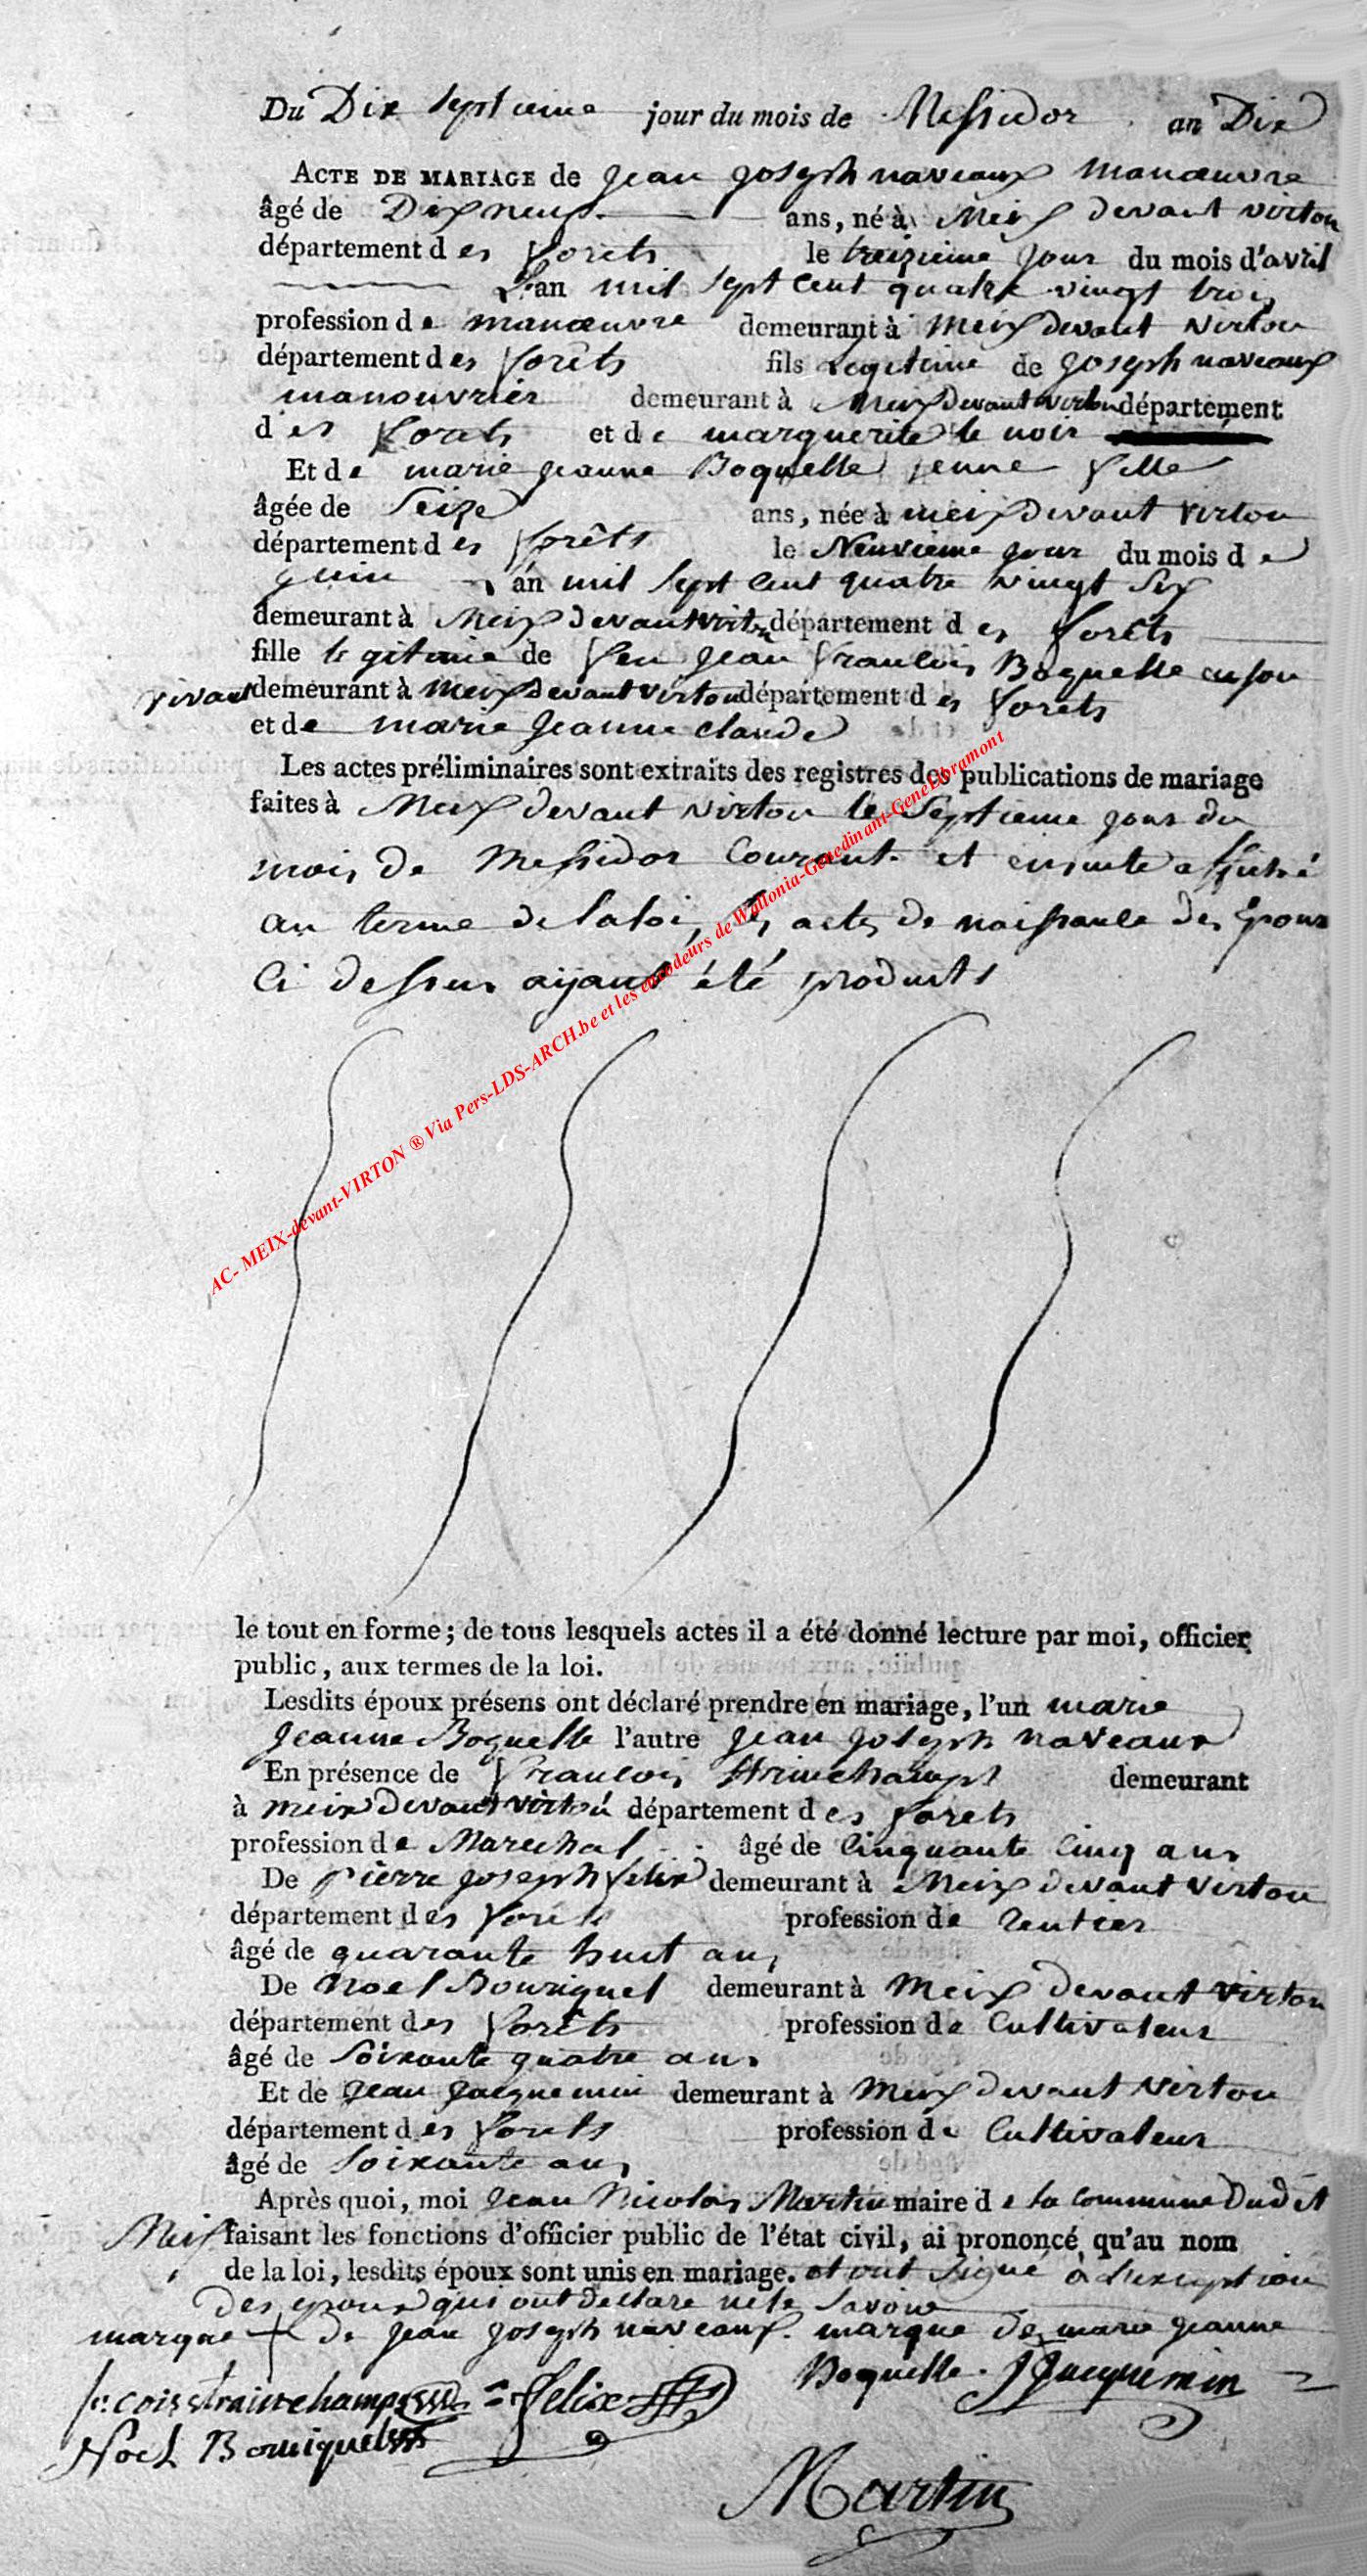 Du Dix Septieme jour du mois de Messidor an Dix
ACTE DE MARIAGE de jean joseph naveaux manœuvre
âgé de Dix neuf ans, né à Meix devant virton
département des forêts le treizieme jour du mois d'avril
L'an mil sept cent quatre vingt trois
profession de manœuvre demeurant à Meix devant virton
département des forêts fils Legitime de joseph naveaux
manouvrier demeurant à Meix devant virton département
des forets et de marguerite le noir
Et de marie jeanne Boquelle jeune fille
âgée de Seize ans, née à meix devant virton
département des forêts le Neuvieme jour du mois de
juin l'an mil sept cent quatre vingt Six
demeurant à Meix devant virton département des forêts
fille legitime de feu jean francois Boquelle en son
vivant demeurant à Meix devant virton département des forets
et de marie jeanne claude
Les actes préliminaires sont extraits des registres des publications de mariage
faites à Meix devant virton le Septieme jour du
mois de Messidor Courant et ensuite affiché
au terme de la loi, les actes de naissance des Epoux
Ci dessus aijant été produits
AC- MEIX-devant-VIRTON ® Via Pers-LDS-ARCH.be et les encodeurs de Wallonia-Genedinant-GeneLibramont
le tout en forme ; de tous lesquels actes il a été donné lecture par moi, officier
public, aux termes de la loi.
Lesdits époux présens ont déclaré prendre en mariage, l'un marie
jeanne Boquelle l'autre jean joseph naveaux
En présence de francois Strinchamps demeurant
à meix devant virton département des forets
profession de Marechal âgé de Cinquante Cinq ans
De pierre joseph felix demeurant à Meix devant virton
département des forêts profession de Rentier
âgé de quarante huit ans
De Noel Bouriquel demeurant à Meix devant virton
département des forêts profession de Cultivateur
âgé de Soixante quatre ans
Et de jean jacquemin demeurant à Meix devant virton
département des forets profession de Cultivateur
âgé de Soixante ans
Après quoi, moi jean Nicolas Martin maire de la Commune Dudit
Meix faisant les fonctions d'officier public de l'état civil, ai prononcé qu'au nom
de la loi, lesdits époux sont unis en mariage. et ont Signé à L'exception
Des epoux qui ont Declaré ne le Savoir
marque + de jean joseph naveaux. marque de marie jeanne
Boquelle. J Jacquemin
fr: cois strainchamps felix
Noel Bouriquel
Martin